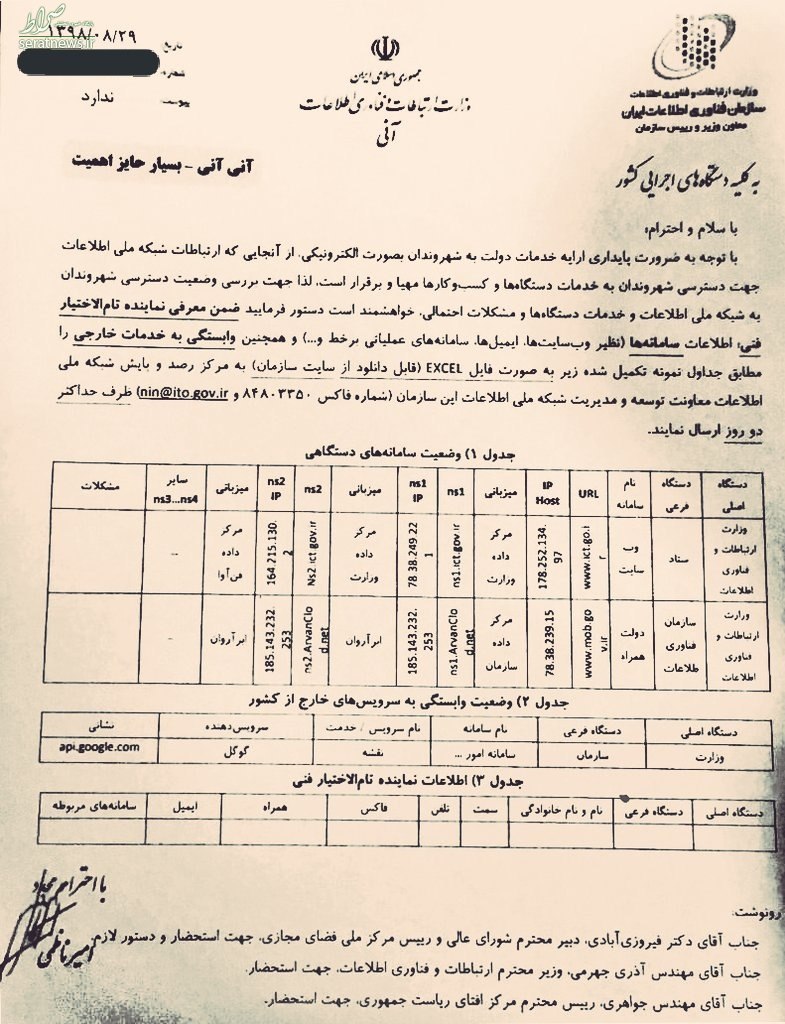 صراط
seratnews.ir
تاریخ ۱۳۹۸/۰۸/۲۹
شماره
پیوست ندارد
جمهوری اسلامی ایران
وزارت ارتباطات و فناوری اطلاعات
آنی
وزارت ارتباطات و فناوری اطلاعات
سازمان فناوری اطلاعات ایران
معاون وزیر و رییس سازمان
آنی آنی - بسیار حایز اهمیت
به کلیه دستگاه‌های اجرایی کشور
با سلام و احترام؛
با توجه به ضرورت پایداری ارایه خدمات دولت به شهروندان بصورت الکترونیکی، از آنجایی که ارتباطات شبکه ملی اطلاعات
جهت دسترسی شهروندان به خدمات دستگاه‌ها و کسب‌وکارها مهیا و برقرار است، لذا جهت بررسی وضعیت دسترسی شهروندان
به شبکه ملی اطلاعات و خدمات دستگاه‌ها و مشکلات احتمالی، خواهشمند است دستور فرمایید ضمن معرفی نماینده تام‌الاختیار
فنی، اطلاعات سامانه‌ها (نظیر وب‌سایت‌ها، ایمیل‌ها، سامانه‌های عملیاتی برخط و...) و همچنین وابستگی به خدمات خارجی را
مطابق جداول نمونه تکمیل شده زیر به صورت فایل EXCEL (قابل دانلود از سایت سازمان) به مرکز رصد و پایش شبکه ملی
اطلاعات معاونت توسعه و مدیریت شبکه ملی اطلاعات این سازمان (شماره فاکس ۸۴۸۰۳۳۵۰ و nin@ito.gov.ir) ظرف حداکثر
دو روز ارسال نمایند.
جدول ۱) وضعیت سامانه‌های دستگاهی
دستگاه اصلی | دستگاه فرعی | نام سامانه | URL | IP Host | میزبانی | ns1 | ns1 IP | میزبانی | ns2 | ns2 IP | میزبانی | سایر ns3...ns4 | مشکلات
وزارت ارتباطات و فناوری اطلاعات | ستاد | وب سایت | www.ict.go.ir | 178.252.134.97 | مرکز داده وزارت | ns1.ict.gov.ir | 78.38.249.221 | مرکز داده وزارت | Ns2.ict.gov.ir | 164.215.130.2 | مرکز داده فن‌آوا | --
وزارت ارتباطات و فناوری اطلاعات | سازمان فناوری طلاعات | دولت همراه | www.mob.gov.ir | 78.38.239.15 | مرکز داده سازمان | ns1.ArvanClod.net | 185.143.232.253 | ابرآروان | ns2.ArvanClod.net | 185.143.232.253 | ابرآروان | -
جدول ۲) وضعیت وابستگی به سرویس‌های خارج از کشور
دستگاه اصلی | دستگاه فرعی | نام سامانه | نام سرویس / خدمت | سرویس‌دهنده | نشانی
وزارت | سازمان | سامانه امور ... | نقشه | گوگل | api.google.com
جدول ۳) اطلاعات نماینده تام‌الاختیار فنی
دستگاه اصلی | دستگاه فرعی | نام و نام خانوادگی | سمت | تلفن | فاکس | همراه | ایمیل | سامانه‌های مربوطه
با احترام مجدد
امیر ناظمی
رونوشت:
جناب آقای دکتر فیروزی‌آبادی، دبیر محترم شورای عالی و رییس مرکز ملی فضای مجازی، جهت استحضار و دستور لازم.
جناب آقای مهندس آذری جهرمی، وزیر محترم ارتباطات و فناوری اطلاعات، جهت استحضار.
جناب آقای مهندس جواهری، رییس محترم مرکز افتای ریاست جمهوری، جهت استحضار.